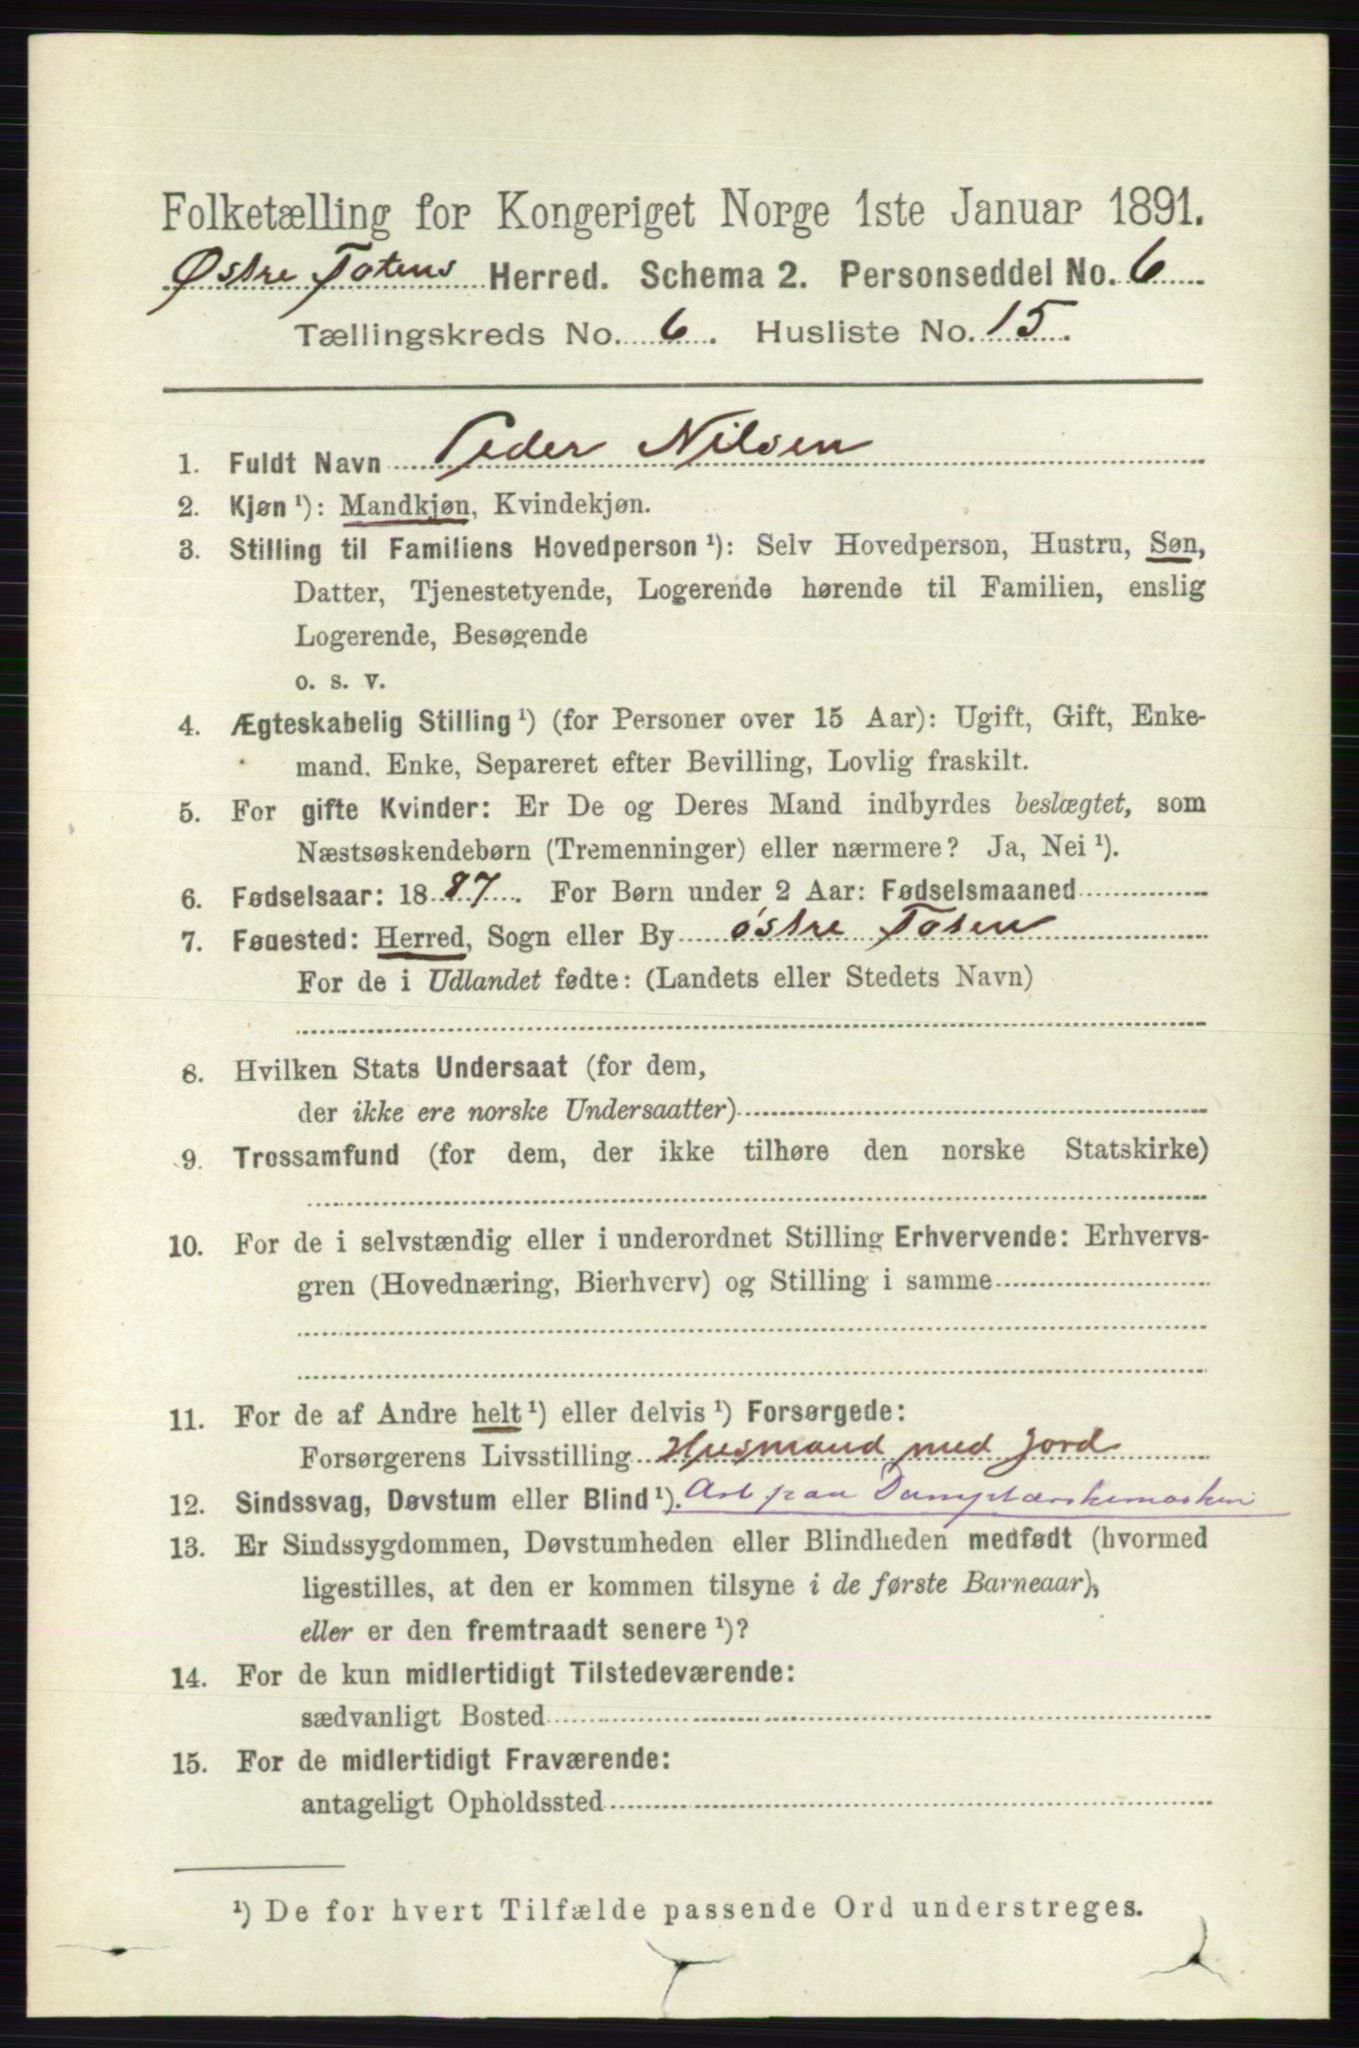 Folketælling for Kongeriget Norge 1ste Januar 1891.
Østre Totens Herred. Schema 2. Personseddel No. 6
Tællingskreds No. 6. Husliste No. 15.
1. Fuldt Navn Peder Nilsen
2. Kjøn ¹): Mandkjøn, Kvindekjøn.
3. Stilling til Familiens Hovedperson ¹): Selv Hovedperson, Hustru, Søn,
Datter, Tjenestetyende, Logerende hørende til Familien, enslig
Logerende, Besøgende
o. s. v.
4. Ægteskabelig Stilling ¹) (for Personer over 15 Aar): Ugift, Gift, Enke-
mand. Enke, Separeret efter Bevilling, Lovlig fraskilt.
5. For gifte Kvinder: Er De og Deres Mand indbyrdes beslægtet, som
Næstsøskendebørn (Tremenninger) eller nærmere? Ja, Nei ¹).
6. Fødselsaar: 1887. For Børn under 2 Aar: Fødselsmaaned
7. Fødested: Herred, Sogn eller By østre Toten
For de i Udlandet fødte: (Landets eller Stedets Navn)
8. Hvilken Stats Undersaat (for dem,
der ikke ere norske Undersaatter)
9. Trossamfund (for dem, der ikke tilhøre den norske Statskirke)
10. For de i selvstændig eller i underordnet Stilling Erhvervende: Erhvervs-
gren (Hovednæring, Bierhverv) og Stilling i samme
11. For de af Andre helt ¹) eller delvis ¹) Forsørgede:
Forsørgerens Livsstilling Husmand med Jord
12. Sindssvag, Døvstum eller Blind ¹). Arb paa
13. Er Sindssygdommen, Døvstumheden eller Blindheden medfødt (hvormed
ligestilles, at den er kommen tilsyne i de første Barneaar),
eller er den fremtraadt senere ¹)?
14. For de kun midlertidigt Tilstedeværende:
sædvanligt Bosted
15. For de midlertidigt Fraværende:
antageligt Opholdssted
¹) De for hvert Tilfælde passende Ord understreges.